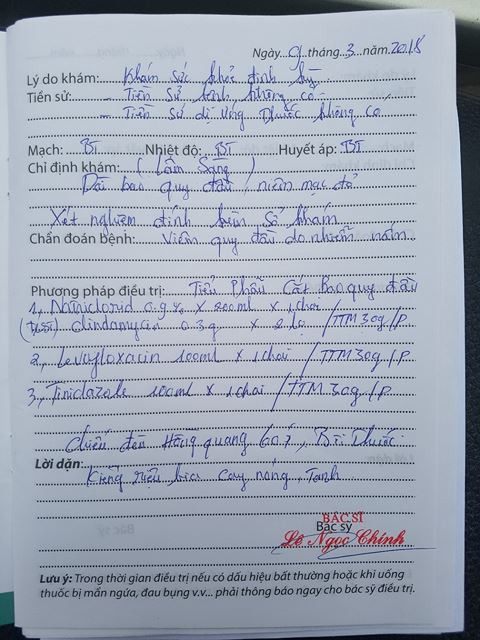 Ngày 9 tháng 3 năm 2018
Lý do khám: Khám sức khỏe định kỳ
Tiền sử: - Tiền sử bệnh không có
- Tiền sử dị ứng thuốc không có
Mạch: BT Nhiệt độ: BT Huyết áp: BT
Chỉ định khám: (Lâm Sàng)
Dài bao quy đầu, niêm mạc đỏ
Xét nghiệm định kèm sổ khám
Chẩn đoán bệnh: Viêm quy đầu do nhiễm nấm
Phương pháp điều trị: Tiểu Phẫu Cắt Bao quy đầu
1, Natriclorid 0.9% x 200ml x 1 chai
Clindamycin 0.3g x 2 lọ /TTM 30g/p
2, Levofloxacin 100ml x 1 chai /TTM 30g/p.
3, Tinidazole 100ml x 1 chai /TTM 30g/p
Chiếu đèn Hồng quang 60', Bôi thuốc
Lời dặn:
Kiêng rượu bia cay nóng, Tanh
BÁC SĨ
Bác sỹ
Lê Ngọc Chính
Lưu ý: Trong thời gian điều trị nếu có dấu hiệu bất thường hoặc khi uống
thuốc bị mẩn ngứa, đau bụng v.v... phải thông báo ngay cho bác sỹ điều trị.